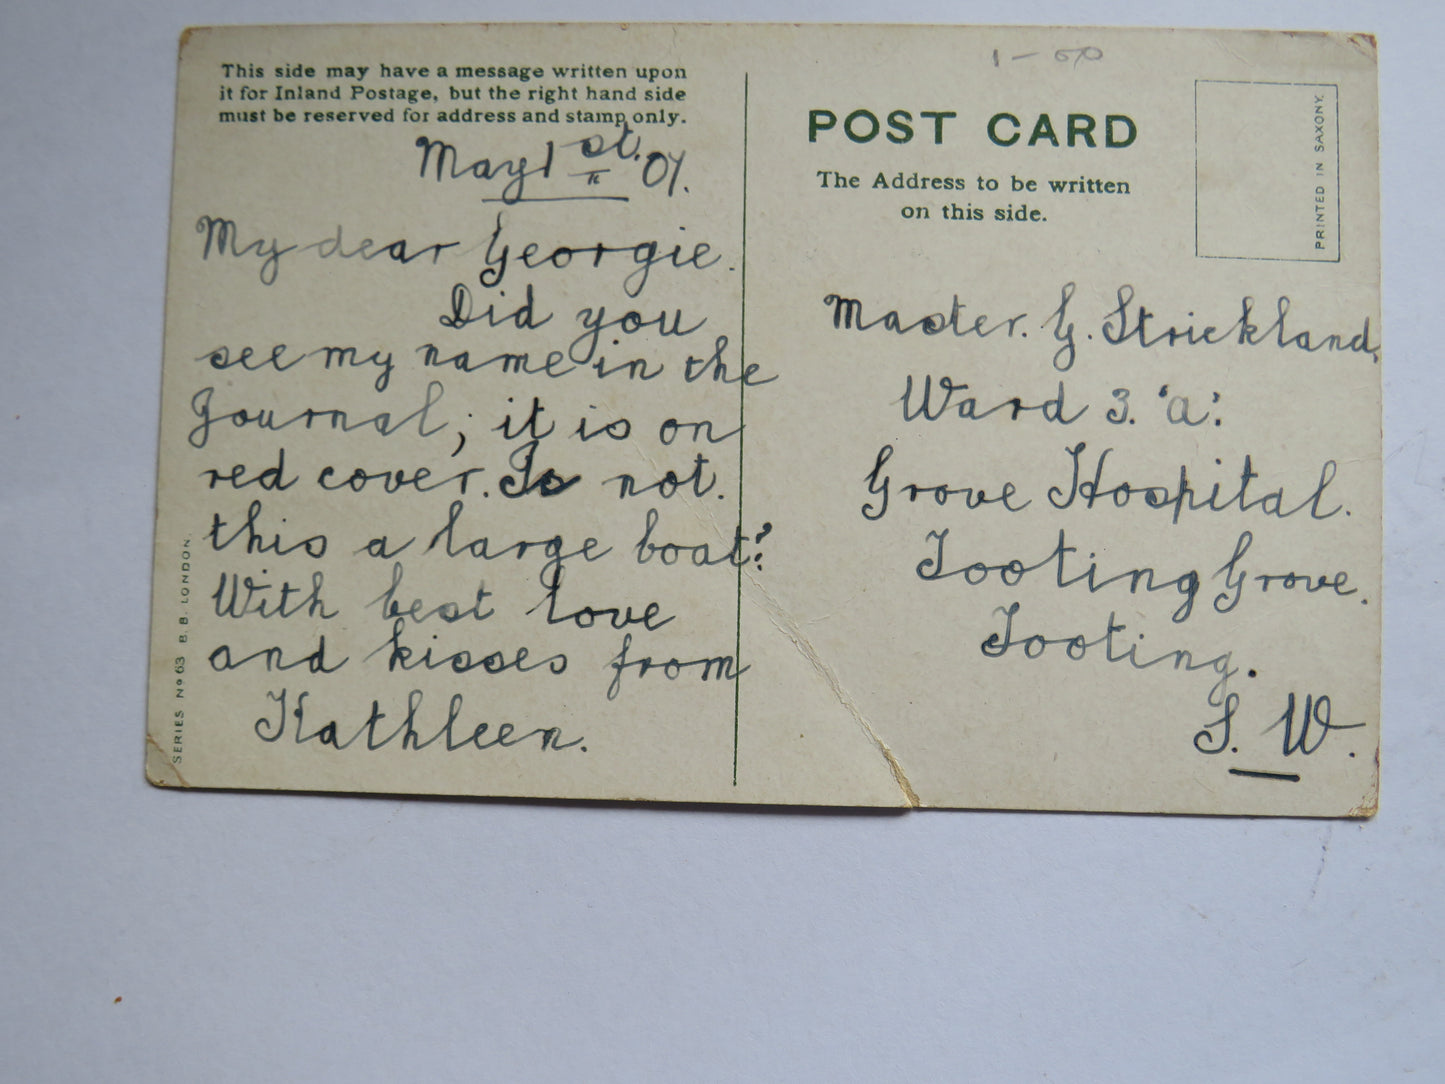 This side may have a message written upon
it for Inland Postage, but the right hand side
must be reserved for address and stamp only.
May 1st. 07.
My dear Georgie.
Did you
see my name in the
Journal; it is on
red cover. Is not.
this a large boat?
With best love
and kisses from
Kathleen.
SERIES No 63 B. B. LONDON.
1-00
POST CARD
The Address to be written
on this side.
PRINTED IN SAXONY.
Master. G. Strickland,
Ward 3. 'a'.
Grove Hospital.
Tooting Grove.
Tooting.
S. W.